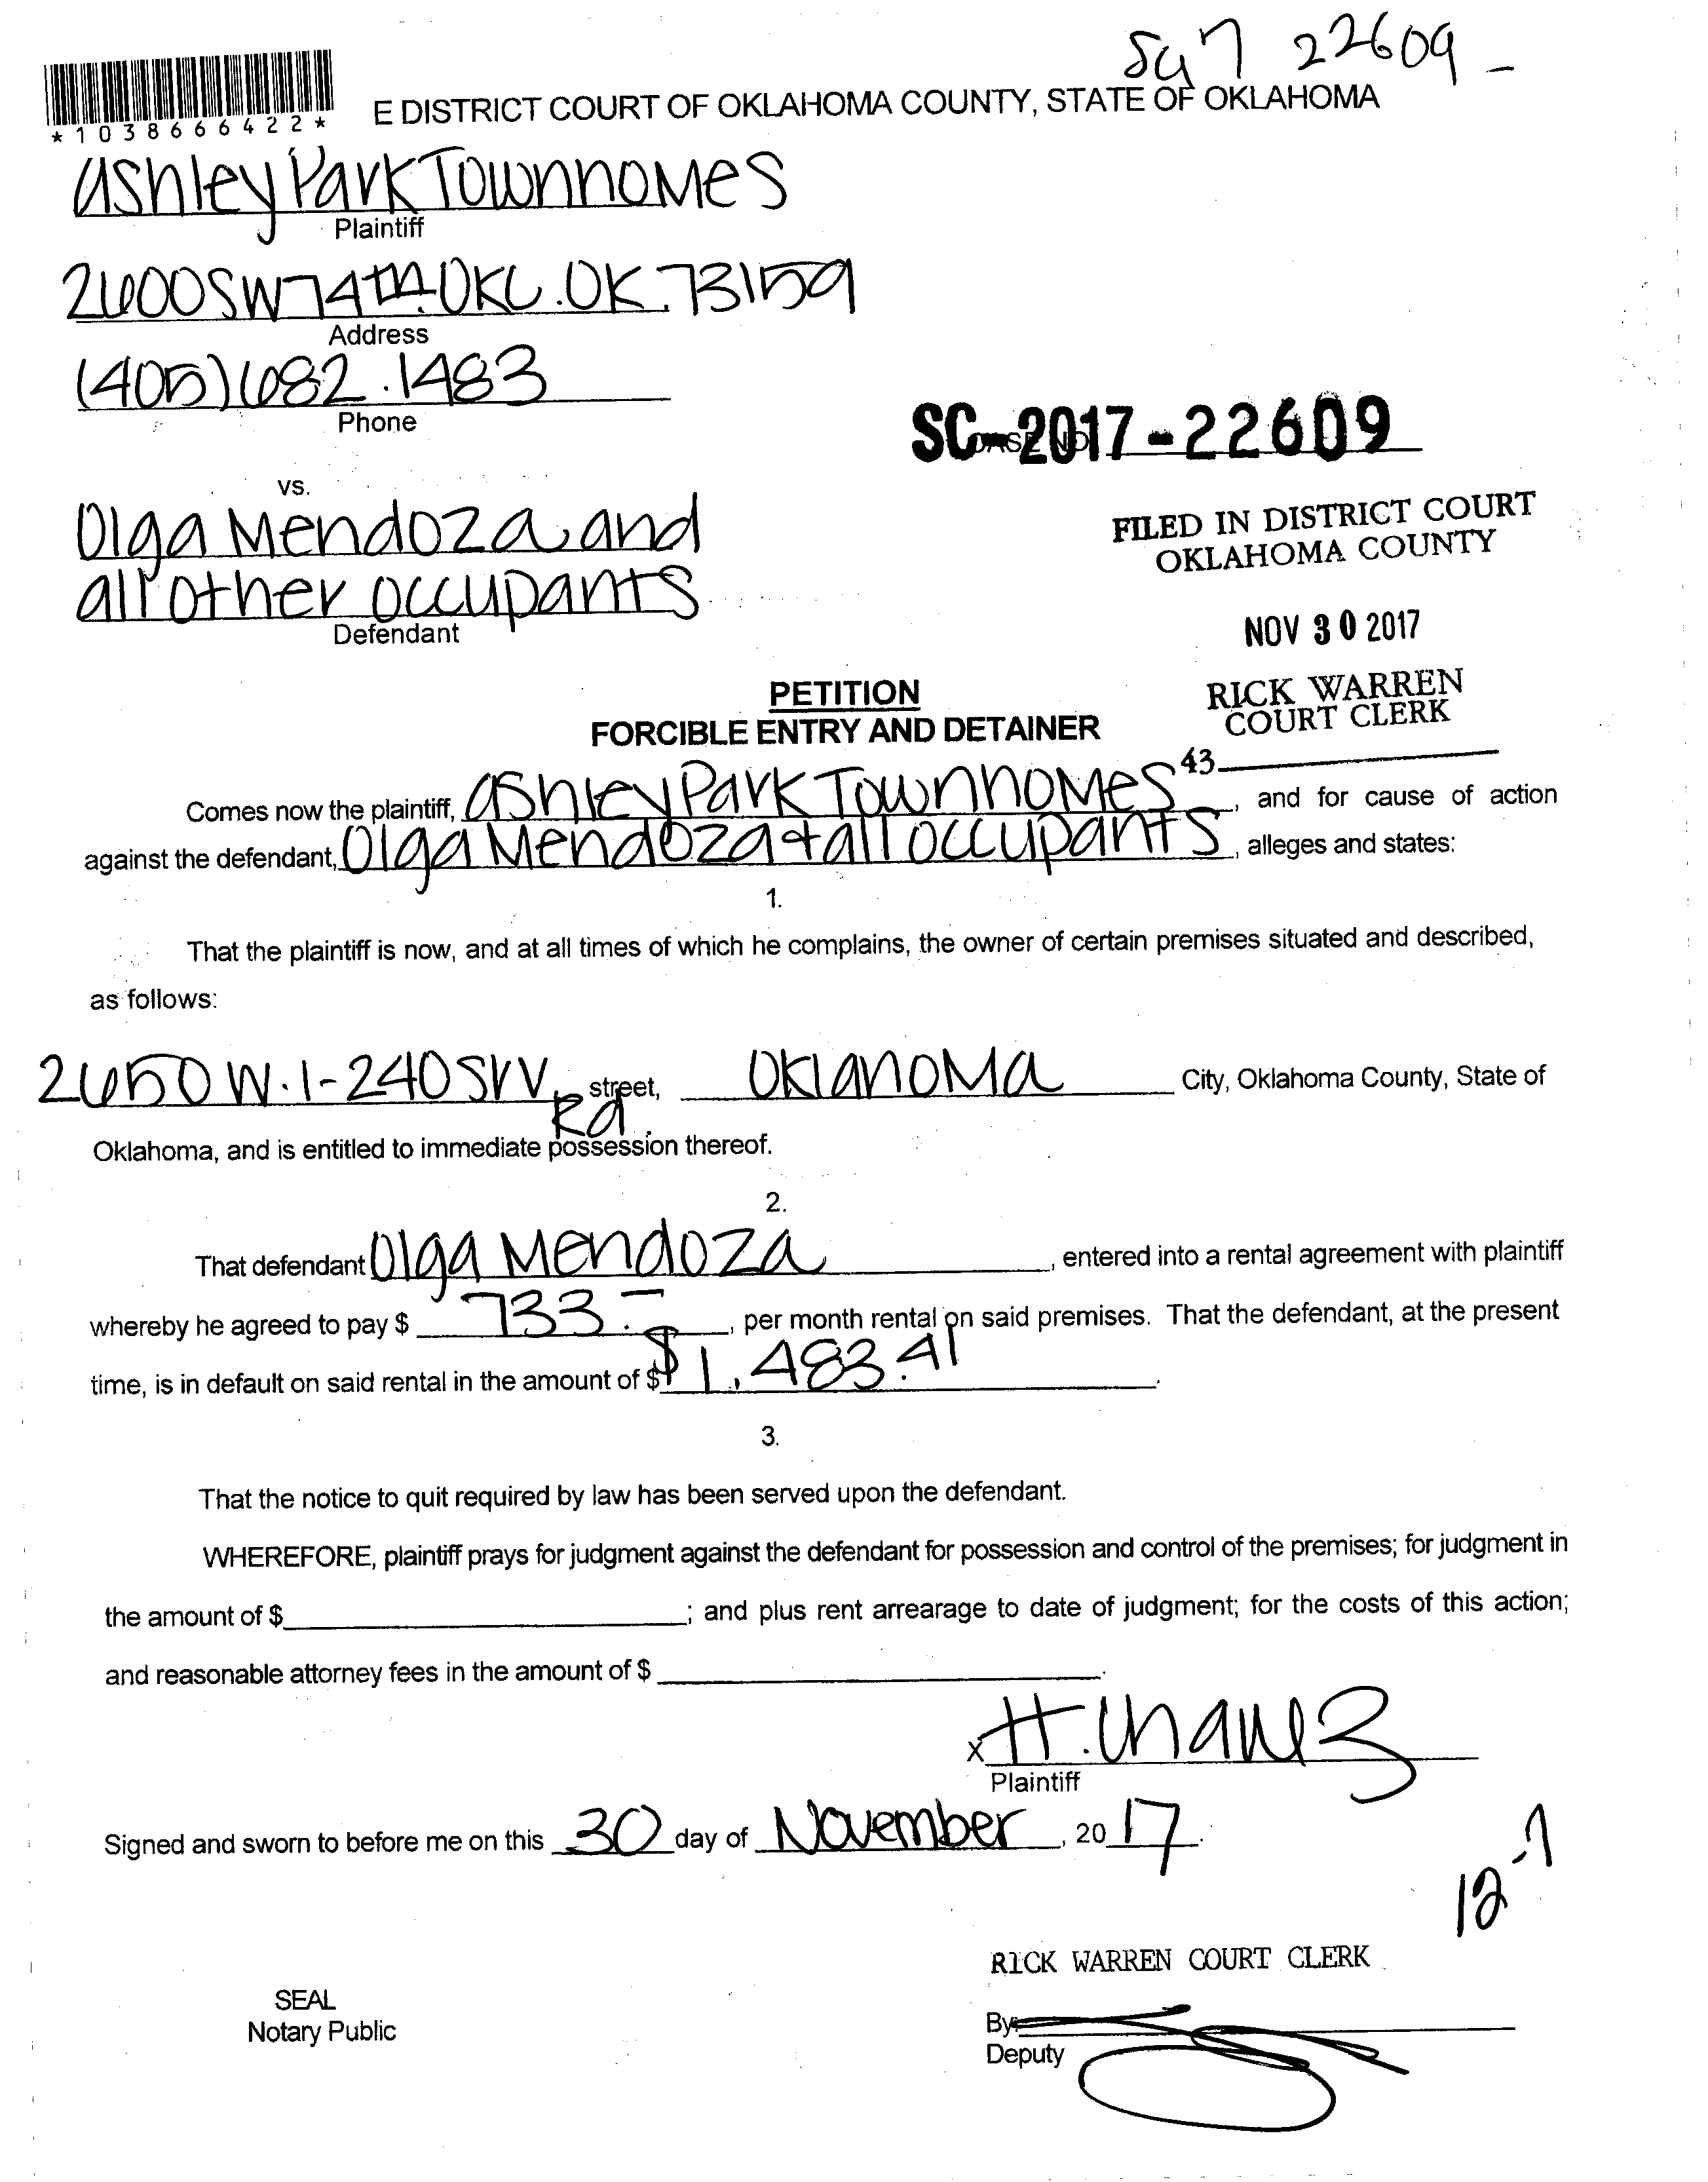 22609-
*1038666422*
E DISTRICT COURT OF OKLAHOMA COUNTY, STATE OF OKLAHOMA
Ashley Park Townhomes
Plaintiff
2600 SW 74th. OKC. OK. 73159
Address
(405) 682.1483
Phone
SC-2017-22609
vs.
Olga Mendoza and
all other occupants
Defendant
FILED IN DISTRICT COURT
OKLAHOMA COUNTY
NOV 30 2017
RICK WARREN
COURT CLERK
43
PETITION
FORCIBLE ENTRY AND DETAINER
Comes now the plaintiff, Ashley Park Townhomes, and for cause of action
against the defendant, Olga Mendoza + all occupants, alleges and states:
1.
That the plaintiff is now, and at all times of which he complains, the owner of certain premises situated and described,
as follows:
2650 W. I-240 SRV Rd. street, Oklahoma City, Oklahoma County, State of
Oklahoma, and is entitled to immediate possession thereof.
2.
That defendant Olga Mendoza, entered into a rental agreement with plaintiff
whereby he agreed to pay $ 733.-, per month rental on said premises. That the defendant, at the present
time, is in default on said rental in the amount of $ $1,483.41.
3.
That the notice to quit required by law has been served upon the defendant.
WHEREFORE, plaintiff prays for judgment against the defendant for possession and control of the premises; for judgment in
the amount of $ ; and plus rent arrearage to date of judgment; for the costs of this action;
and reasonable attorney fees in the amount of $ .
x H. Chavez
Plaintiff
Signed and sworn to before me on this 30 day of November, 2017.
12-7
RICK WARREN COURT CLERK
SEAL
Notary Public
By:
Deputy